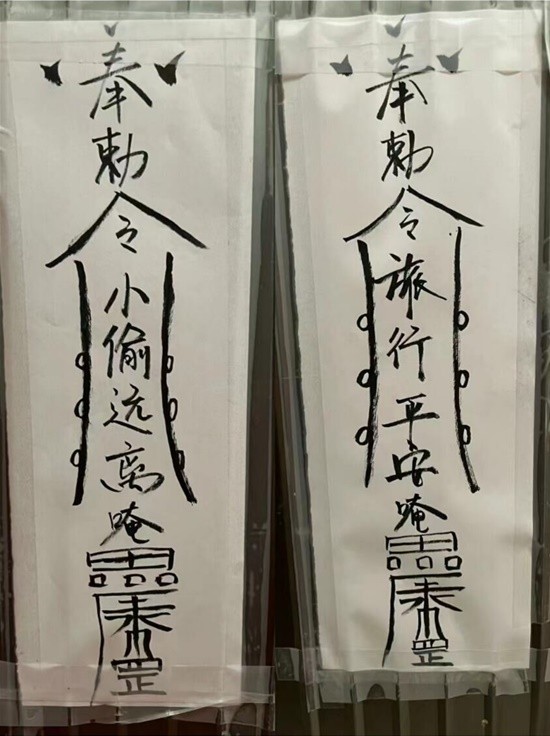 奉敕令小偷远离唵
奉敕令旅行平安唵